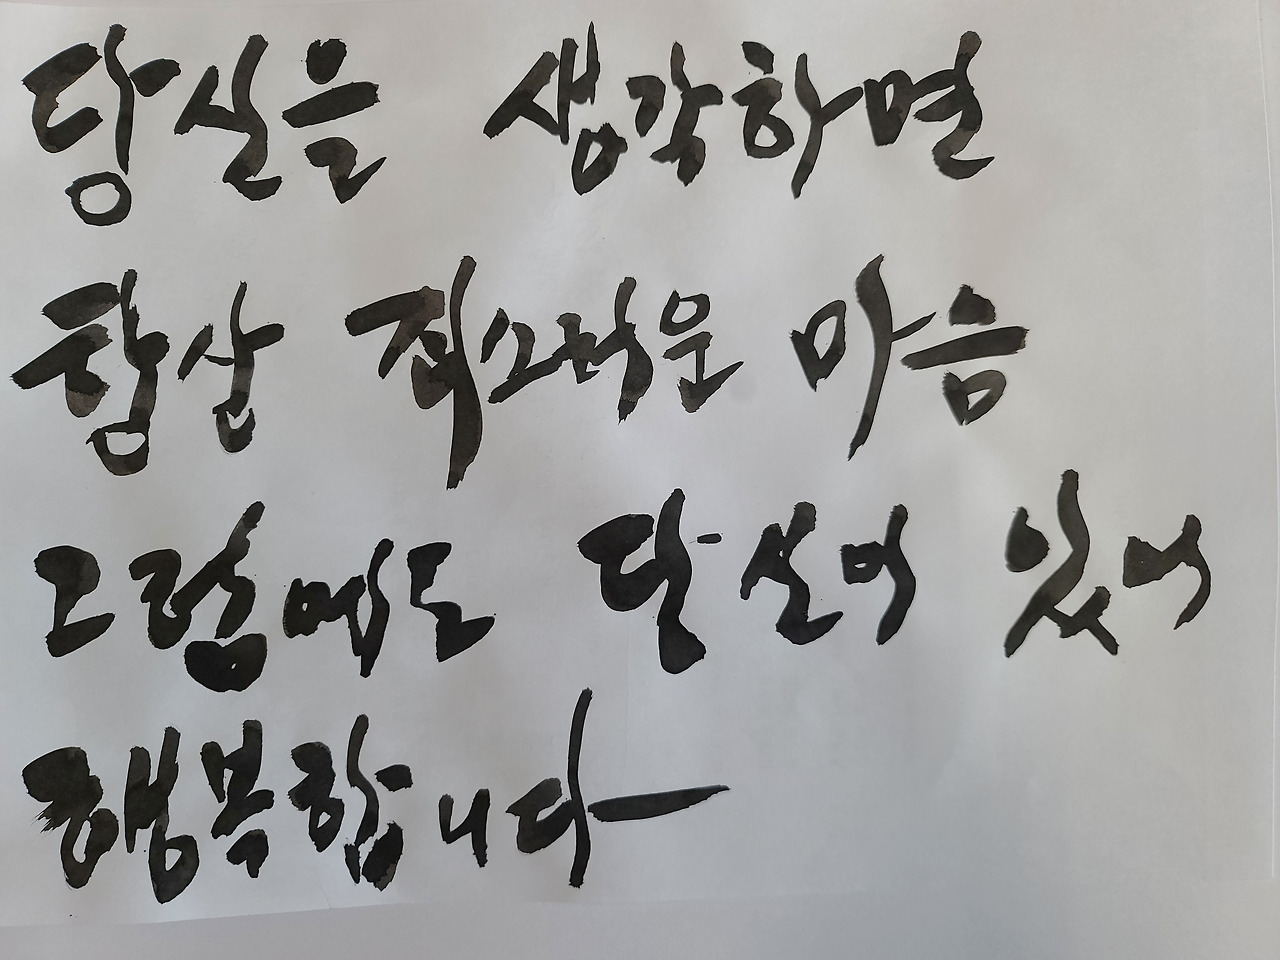 당신을 생각하면
항상 죄스러운 마음
그럼에도 당신이 있어
행복합니다